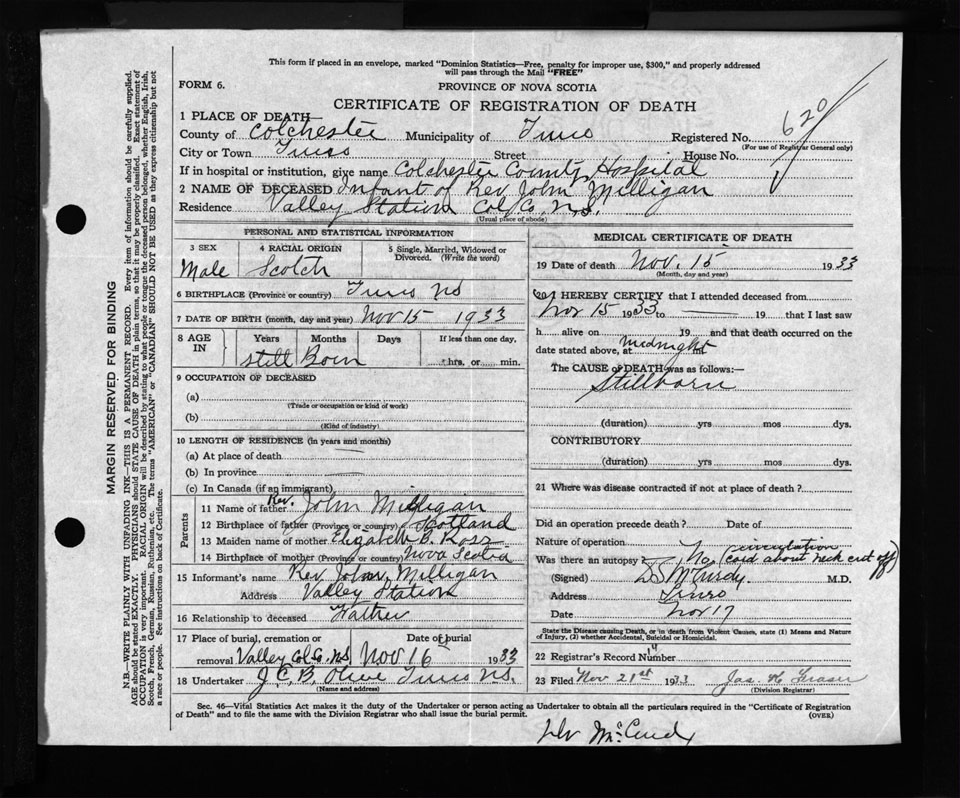 This form if placed in an envelope, marked "Dominion Statistics—Free, penalty for improper use, $300," and properly addressed
will pass through the Mail "FREE"
FORM 6.
PROVINCE OF NOVA SCOTIA
CERTIFICATE OF REGISTRATION OF DEATH
620
1 PLACE OF DEATH—
County of Colchester Municipality of Truro Registered No.
(For use of Registrar General only)
City or Town Truro Street House No.
If in hospital or institution, give name Colchester County Hospital
2 NAME OF DECEASED Infant of Rev John Milligan
Residence Valley Station Col. Co. N.S.
(Usual place of abode)
PERSONAL AND STATISTICAL INFORMATION
3 SEX 4 RACIAL ORIGIN 5 Single, Married, Widowed or Divorced. (Write the word)
Male Scotch
6 BIRTHPLACE (Province or country) Truro NS
7 DATE OF BIRTH (month, day and year) Nov 15 1933
8 AGE IN Years Months Days If less than one day,
Still Born hrs. or min.
9 OCCUPATION OF DECEASED
(a)
(Trade or occupation or kind of work)
(b)
(Kind of industry)
10 LENGTH OF RESIDENCE (in years and months)
(a) At place of death
(b) In province
(c) In Canada (if an immigrant)
Parents
11 Name of father Rev. John Milligan
12 Birthplace of father (Province or country) Scotland
13 Maiden name of mother Elizabeth B. Ross
14 Birthplace of mother (Province or country) Nova Scotia
15 Informant's name Rev. John Milligan
Address Valley Station
16 Relationship to deceased Father
17 Place of burial, cremation or removal Date of burial
Valley Col. Co. N.S Nov 16 1933
18 Undertaker J. C. B. Olive Truro N.S.
(Name and address)
MEDICAL CERTIFICATE OF DEATH
19 Date of death Nov. 15 1933
(Month, day and year)
20 I HEREBY CERTIFY that I attended deceased from
Nov 15 1933 to 19 that I last saw
h alive on 19 and that death occurred on the
date stated above, at midnight m
The CAUSE of DEATH was as follows:—
Stillborn
(duration) yrs mos dys.
CONTRIBUTORY
(duration) yrs mos dys.
21 Where was disease contracted if not at place of death?
Did an operation precede death? Date of
Nature of operation
Was there an autopsy? No. (cord about neck cut off circulation)
(Signed) D S McCurdy. M.D.
Address Truro
Date Nov 17
State the Disease causing Death, or in death from Violent Causes, state (1) Means and Nature
of Injury, (2) whether Accidental, Suicidal or Homicidal.
22 Registrar's Record Number
23 Filed Nov 21st 1933 Jas. H. Fraser
(Division Registrar)
Sec. 46—Vital Statistics Act makes it the duty of the Undertaker or person acting as Undertaker to obtain all the particulars required in the "Certificate of Registration
of Death" and to file the same with the Division Registrar who shall issue the burial permit.
(OVER)
Dr McCurdy
MARGIN RESERVED FOR BINDING
N.B.—WRITE PLAINLY WITH UNFADING INK—THIS IS A PERMANENT RECORD. Every item of information should be carefully supplied.
AGE should be stated EXACTLY. PHYSICIANS should STATE CAUSE OF DEATH in plain terms, so that it may be properly classified. Exact statement of
OCCUPATION is very important. RACIAL ORIGIN will be described by stating to what people or tongue the deceased person belonged, whether English, Irish,
Scotch, French, German, Russian, Ruthenian, etc. The terms "AMERICAN" or "CANADIAN" SHOULD NOT BE USED as they express citizenship but not
a race or people. See instructions on back of Certificate.